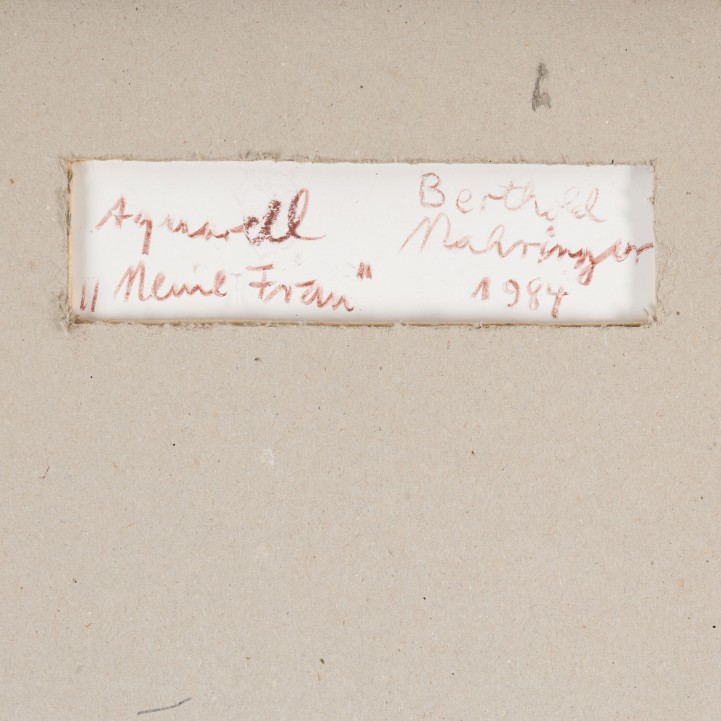 Aquarell
„Meine Frau"
Berthold
Mahringer
1984